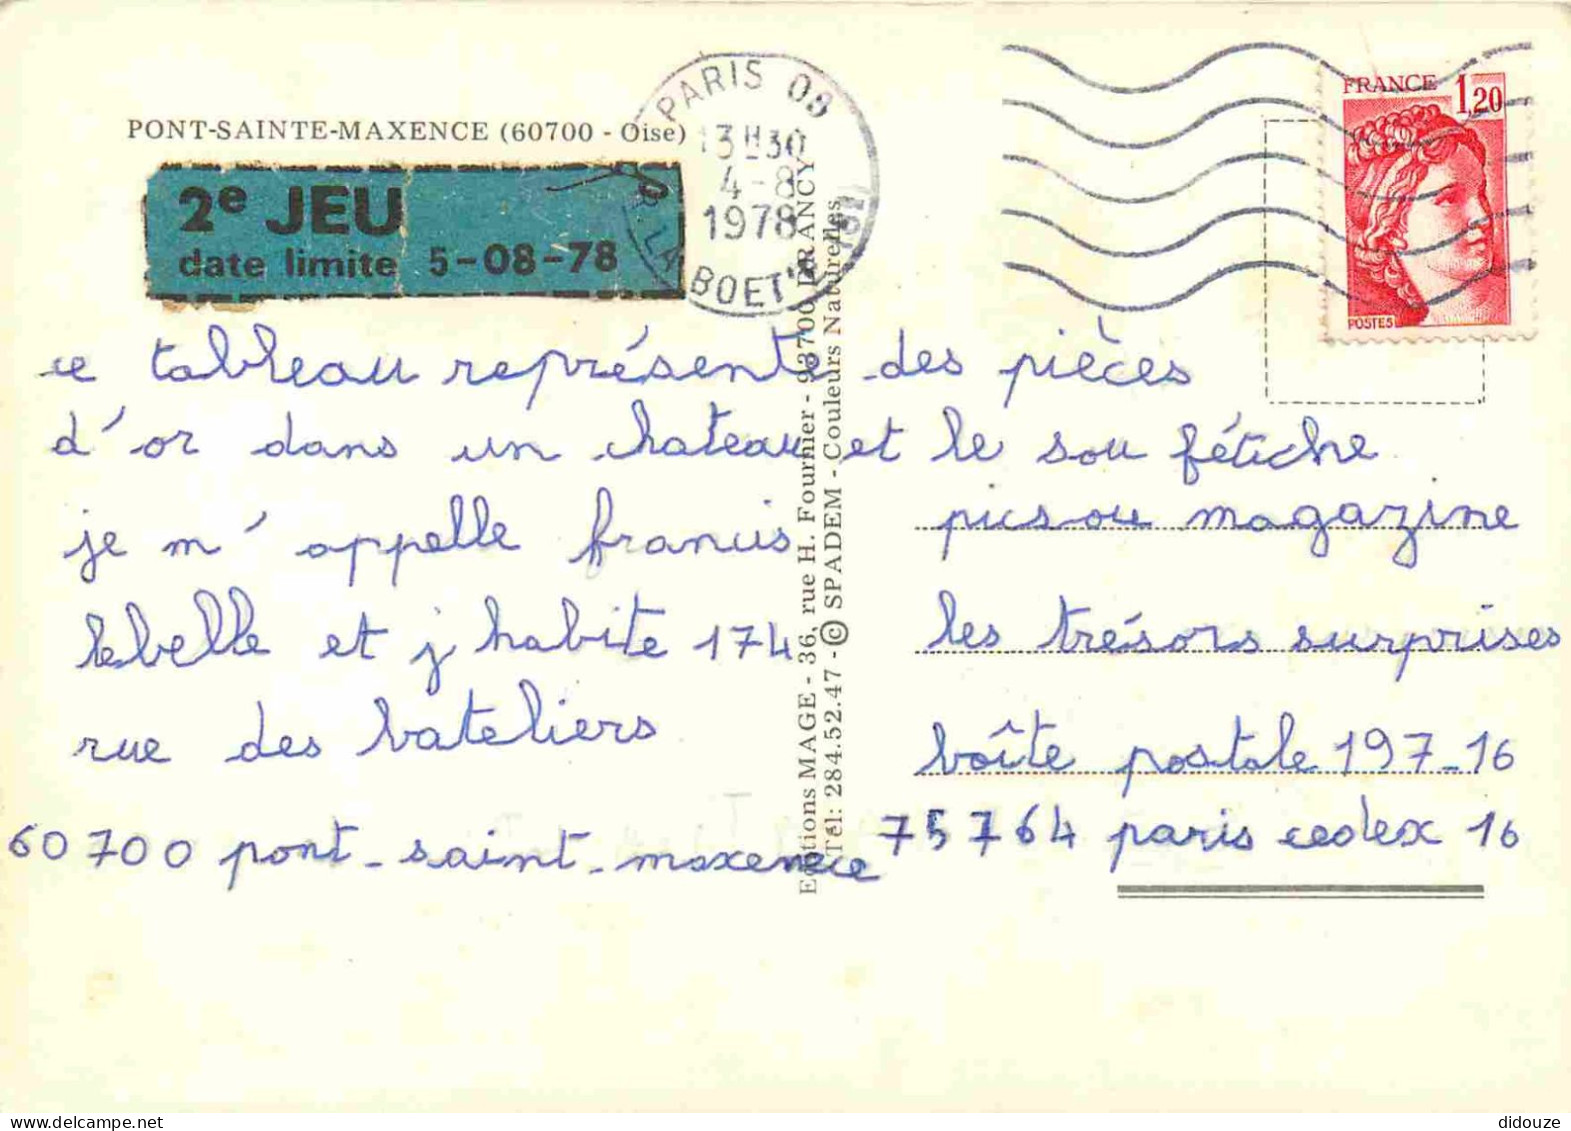 PONT-SAINTE-MAXENCE (60700 - Oise)
PARIS 08
13H30
4-8
1978
LA BOETIE
FRANCE 1,20
POSTES
2e JEU
date limite 5-08-78
ce tableau représente des pièces
d'or dans un chateau et le sou fétiche
je m'appelle francis
lebelle et j habite 174
rue des bateliers
60700 pont-saint-maxence
Editions MAGE - 36, rue H. Fournier - 93700 DRANCY
Tél: 284.52.47 - © SPADEM - Couleurs Naturelles
picsou magazine
les trésors surprises
boîte postale 197-16
75764 paris cedex 16
didouze